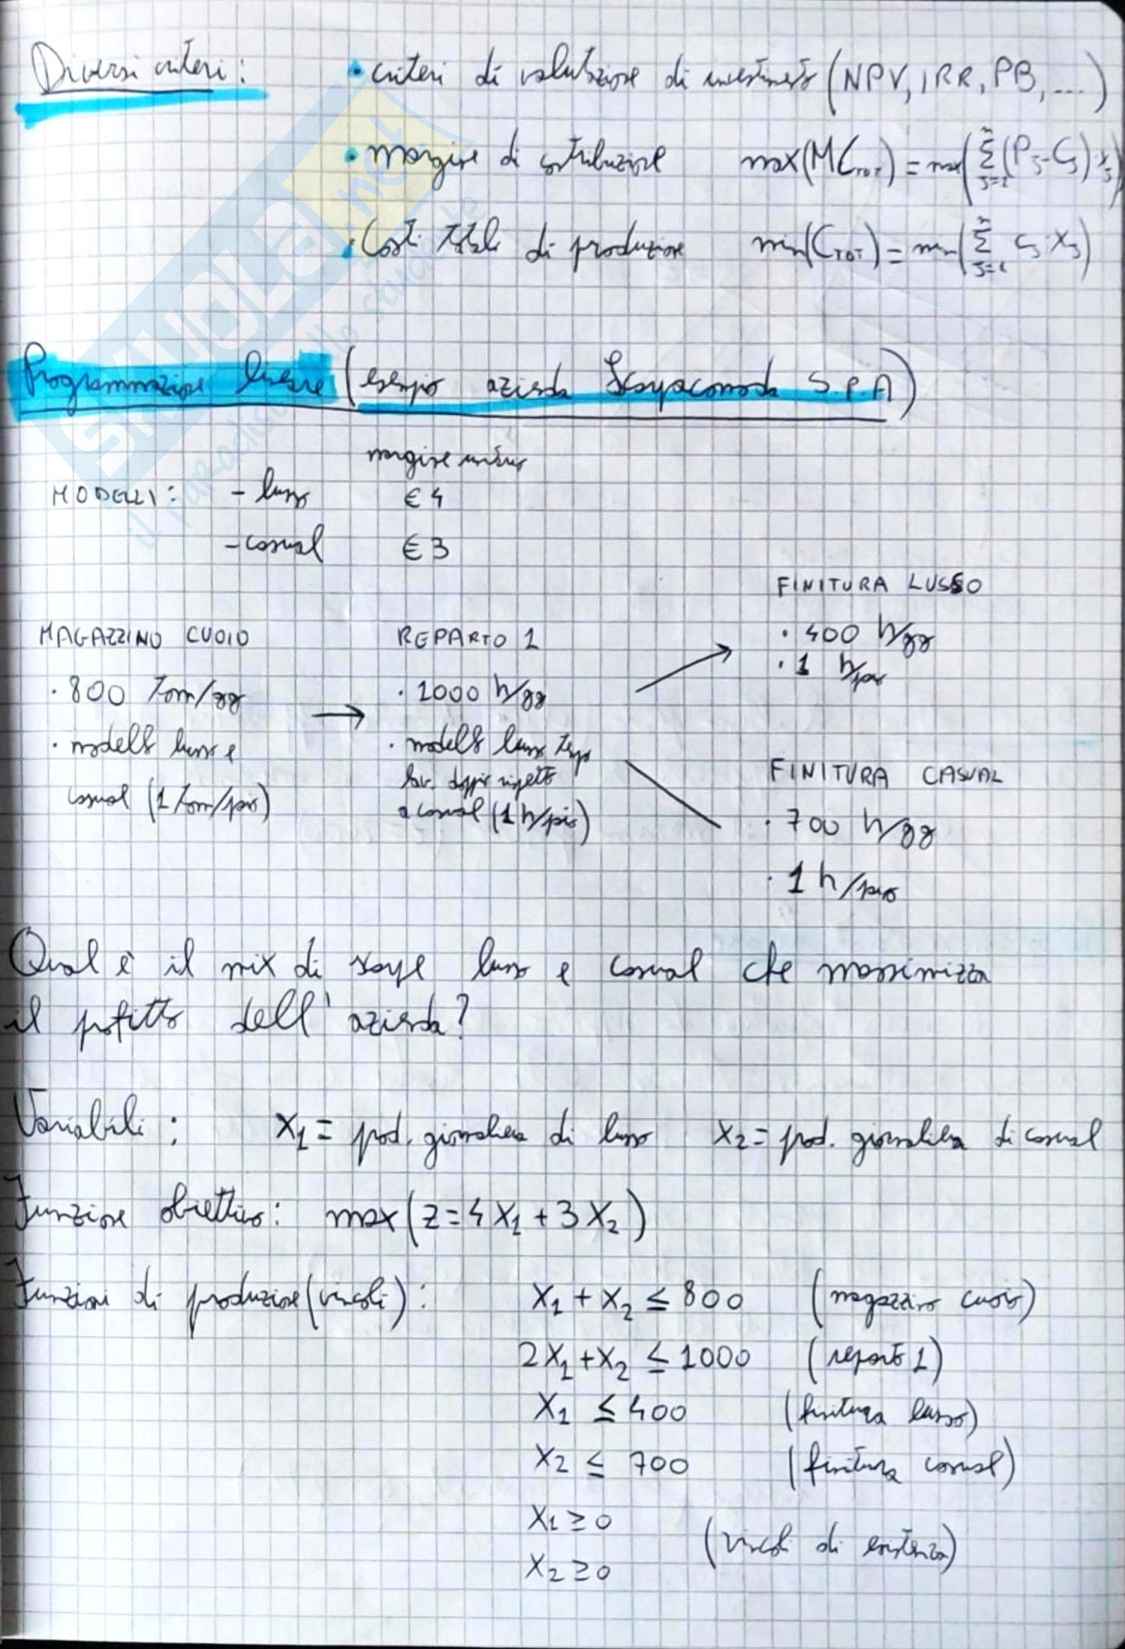 Diversi criteri:
• criteri di valutazione di investimento (NPV, IRR, PB, ...)
• margine di contribuzione max(MC_TOT) = max(∑_{j=1}^{n} (P_j - C_j) x_j)
• Costi totali di produzione min(C_TOT) = min(∑_{j=1}^{n} c_j · x_j)
Programmazione lineare (esempio azienda Scarpacomoda S.P.A)
margine unitario
MODELLI: - lusso € 4
- casual € 3
FINITURA LUSSO
MAGAZZINO CUOIO REPARTO 1
· 400 h/gg
· 1 h/paio
· 800 Tom/gg → · 1000 h/gg
· modello lusso e
casual (1 Tom/paio)
· modello lusso tempo
lav. doppio rispetto
a casual (1 h/paio)
FINITURA CASUAL
· 700 h/gg
· 1 h/paio
Qual è il mix di scarpe lusso e casual che massimizza
il profitto dell'azienda?
Variabili: X₁ = prod. giornaliera di lusso X₂ = prod. giornaliera di casual
Funzione obiettivo: max(z = 4X₁ + 3X₂)
Funzioni di produzione (vincoli): X₁ + X₂ ≤ 800 (magazzino cuoio)
2X₁ + X₂ ≤ 1000 (reparto 1)
X₁ ≤ 400 (finitura lusso)
X₂ ≤ 700 (finitura casual)
X₁ ≥ 0
(vincoli di esistenza)
X₂ ≥ 0
SKUOLA.net